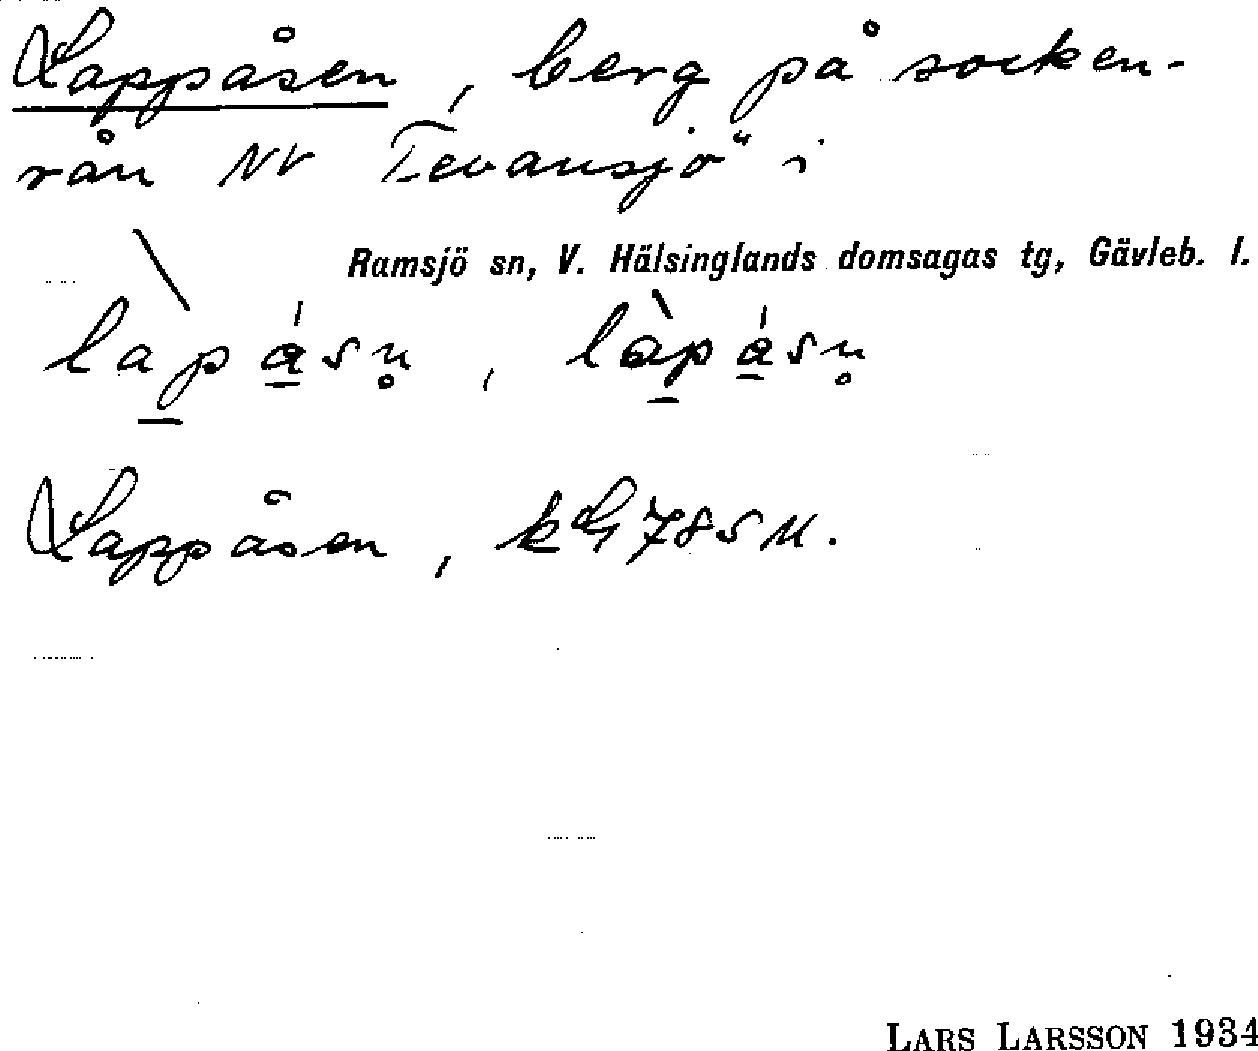 Lappåsen, berg på socken-
rån NV Tevansjö i
Ramsjö sn, V. Hälsinglands domsagas tg, Gävleb. l.
Lappåsen,
LARS LARSSON 1934